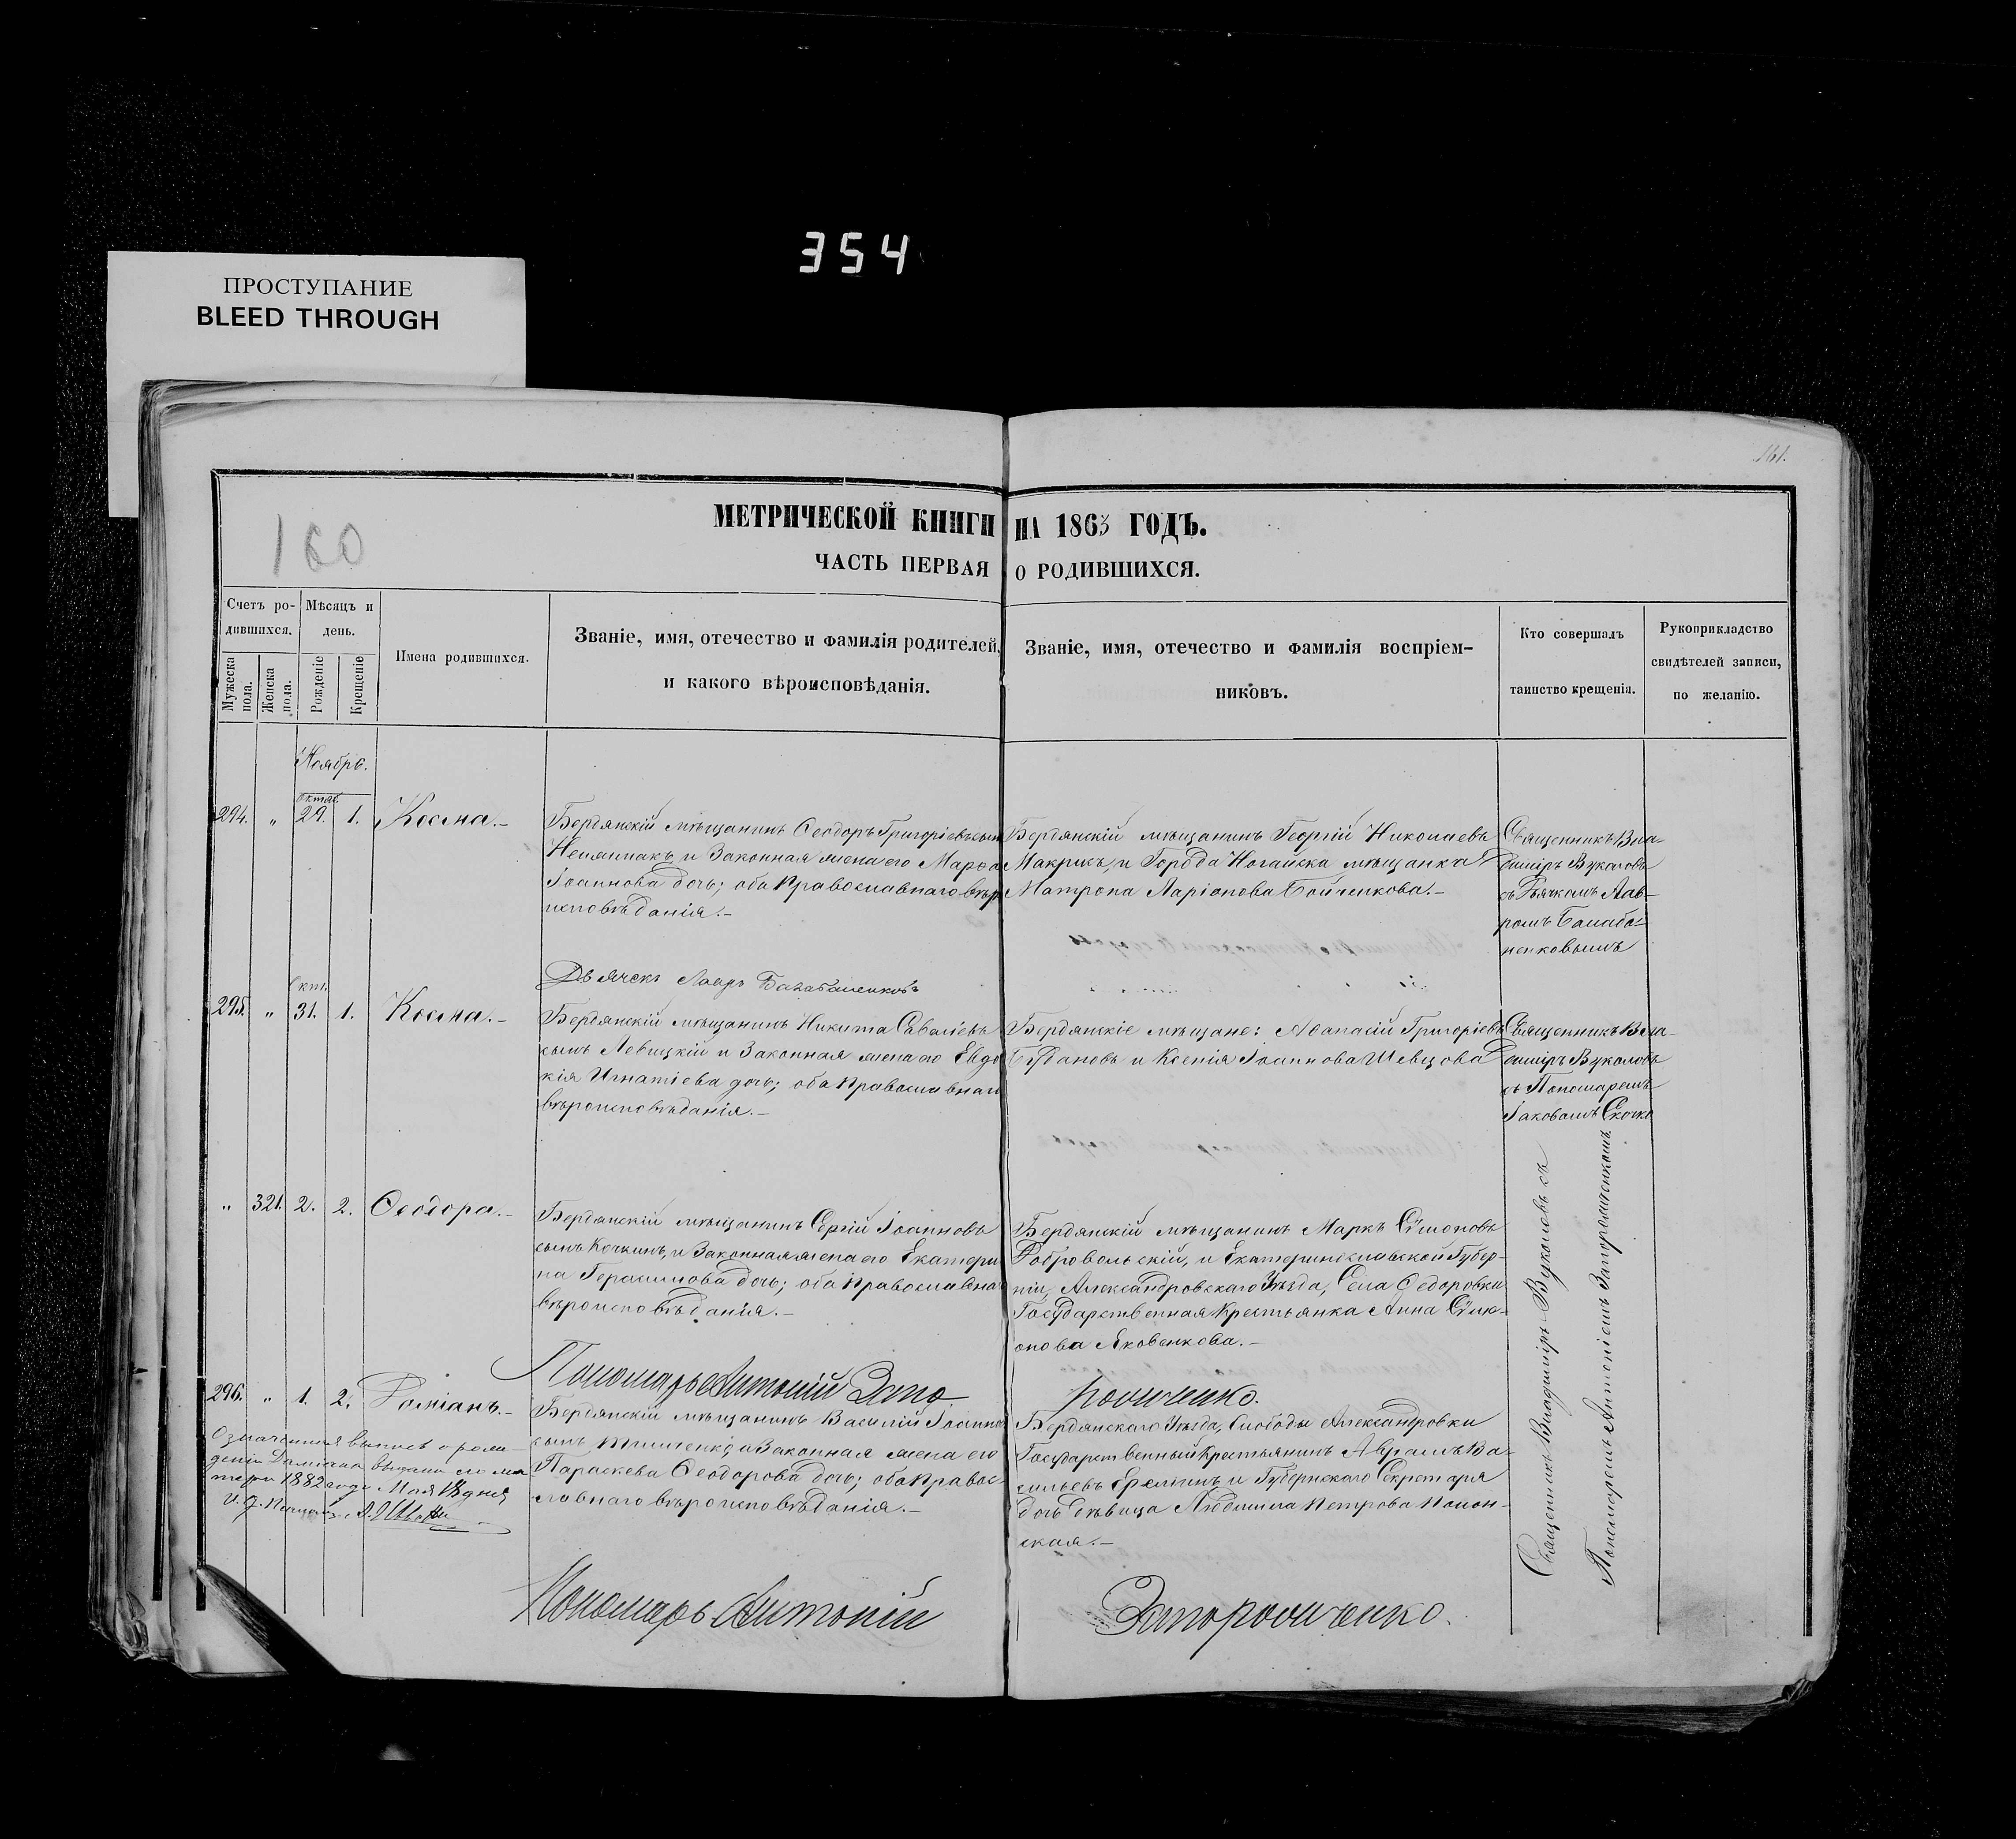 354
ПРОСТУПАНИЕ
BLEED THROUGH
161.
160
МЕТРИЧЕСКОЙ КНИГИ НА 1863 ГОДЪ.
ЧАСТЬ ПЕРВАЯ О РОДИВШИХСЯ.
Счетъ ро-
дившихся.
Мужеска
пола.
Женска
пола.
Мѣсяцъ и
день.
Рожденіе
Крещеніе
Имена родившихся.
Званіе, имя, отечество и фамилія родителей,
и какого вѣроисповѣданія.
Званіе, имя, отечество и фамилія воспріем-
никовъ.
Кто совершалъ
таинство крещенія.
Рукоприкладство
свидѣтелей записи,
по желанію.
Ноябрь.
Октяб.
294. " 29. 1. Косма.-
Бердянскій мѣщанинъ Ѳеодоръ Григоріевъ сынъ
и Законная жена его Марѳа
Іоаннова дочь; оба Православнаго вѣро
исповѣданія.-
Бердянскій мѣщанинъ Георгій Николаевъ
Макрисъ, и Города Ногайска мѣщанка
Матрона Ларіонова Бойченкова.-
Священникъ Вла-
диміръ Вукаловъ
съ Дьячкомъ Лав-
ромъ Балаба-
ненковымъ
Дьячекъ Лавръ Балабаненковъ
Окт.
295. " 31. 1. Косма.-
Бердянскій мѣщанинъ Никита Савельевъ
сынъ Левицкій и Законная жена его Евдо
кія Игнатіева дочь; оба Православнаго
вѣроисповѣданія.-
Бердянскіе мѣщане: Аѳанасій Григоріевъ
Богдановъ и Ксенія Іоаннова Шевцова
Священникъ Вла-
диміръ Вукаловъ
съ Пономаремъ
Іаковомъ Скочко
" 321. 2. 2. Ѳеодора.-
Бердянскій мѣщанинъ Сергій Іоанновъ
сынъ Кочкинъ, и Законная жена его Екатери
на Герасимова дочь; оба Православнаго
вѣроисповѣданія.-
Бердянскій мѣщанинъ Маркъ Симоновъ
Добровольскій, и Екатеринославской Губер-
ніи, Александровскаго Уѣзда, Села Ѳедоровки
Государственная Крестьянка Анна Сѵме-
онова Яковенкова.-
Пономарь Антоній Запо
рожченко.
296. " 1. 2. Даміанъ.-
Бердянскій мѣщанинъ Василій Іоанно
сынъ Тимченко, и Законная жена его
Параскева Ѳеодорова дочь; оба Правос-
лавнаго вѣроисповѣданія.-
Бердянскаго Уѣзда, Слободы Александровки
Государственный Крестьянинъ Аврамъ Ва-
сильевъ Еремкинъ и Губернскаго Секретаря
дочь дѣвица Людмила Петрова Полон-
ская.-
Означенная выпись о рож-
деніи Даміана выдана его ма
тери 1882 года Мая 18 дня
Священникъ Владиміръ Вукаловъ съ
Пономаремъ Антоніемъ Запорожченкомъ
Пономарь Антоній
Запорожченко.